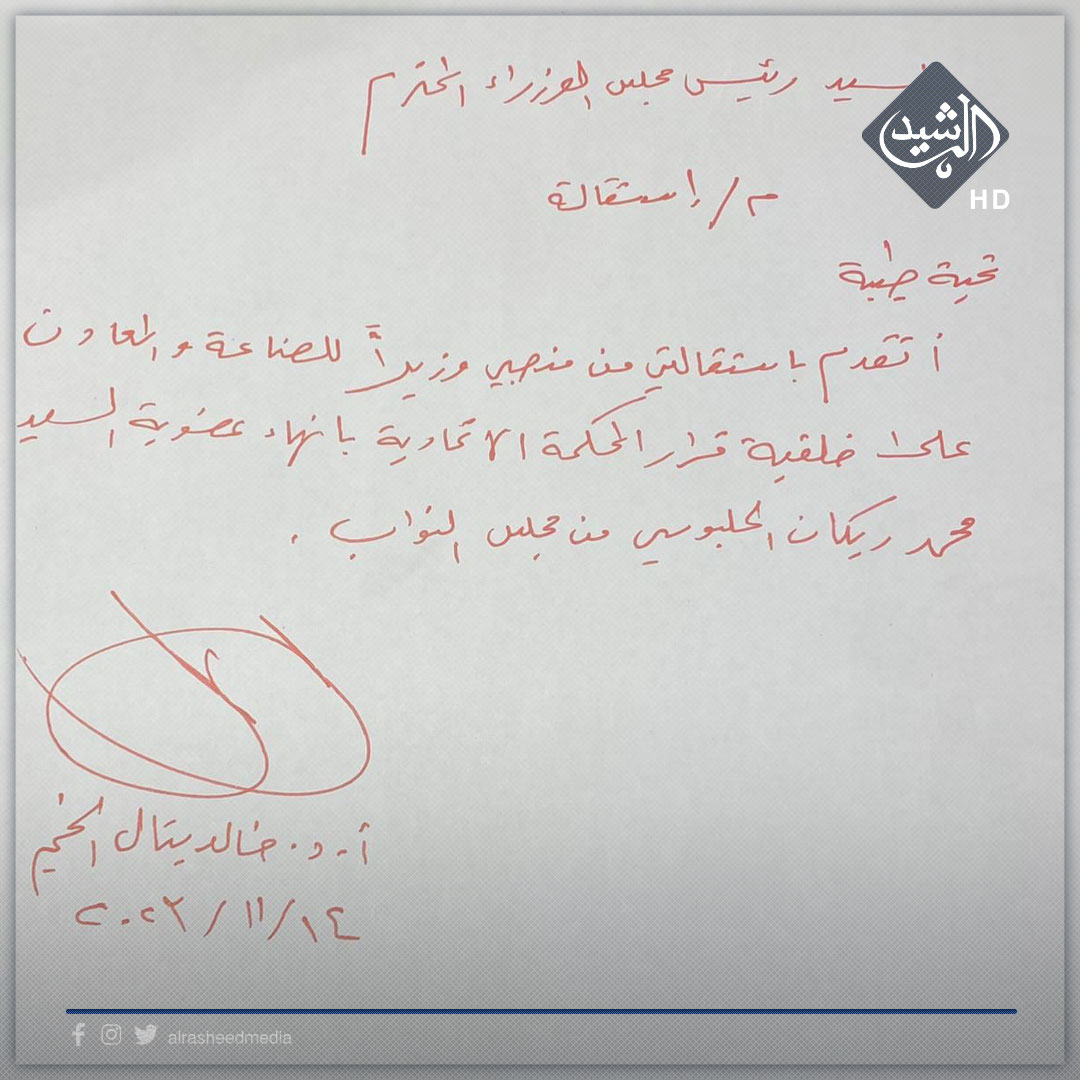 السيد رئيس مجلس الوزراء المحترم
الرشيد
HD
م/ إستقالة
تحية طيبة
أتقدم باستقالتي من منصبي وزيراً للصناعة والمعادن
على خلفية قرار المحكمة الاتحادية بانهاء عضوية السيد
محمد ريكان الحلبوسي من مجلس النواب .
أ. د. خالد بتال الخيم
٢٠٢٣/١١/١٤
alrasheedmedia